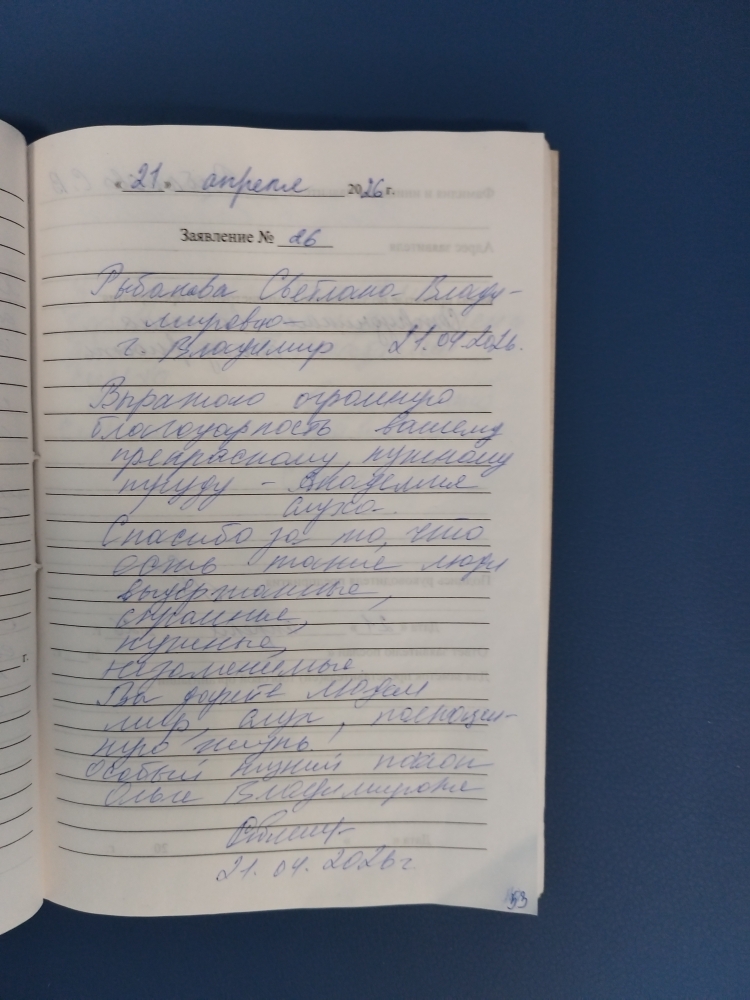 « 21 » апреля 2026 г.
Заявление № 26
Рыбакова Светлана Влади-
мировна
г. Владимир 21.04.2026.
Выражаю огромную
благодарность вашему
прекрасному, нужному
труду - Академия
слуха.
Спасибо за то, что
есть такие люди
выдержанные,
скромные,
нужные,
незаменимые.
Вы дарите людям
мир, слух, полноцен-
ную жизнь.
Особый низкий поклон
Ольге Владимировне
21.04.2026 г
53
г.